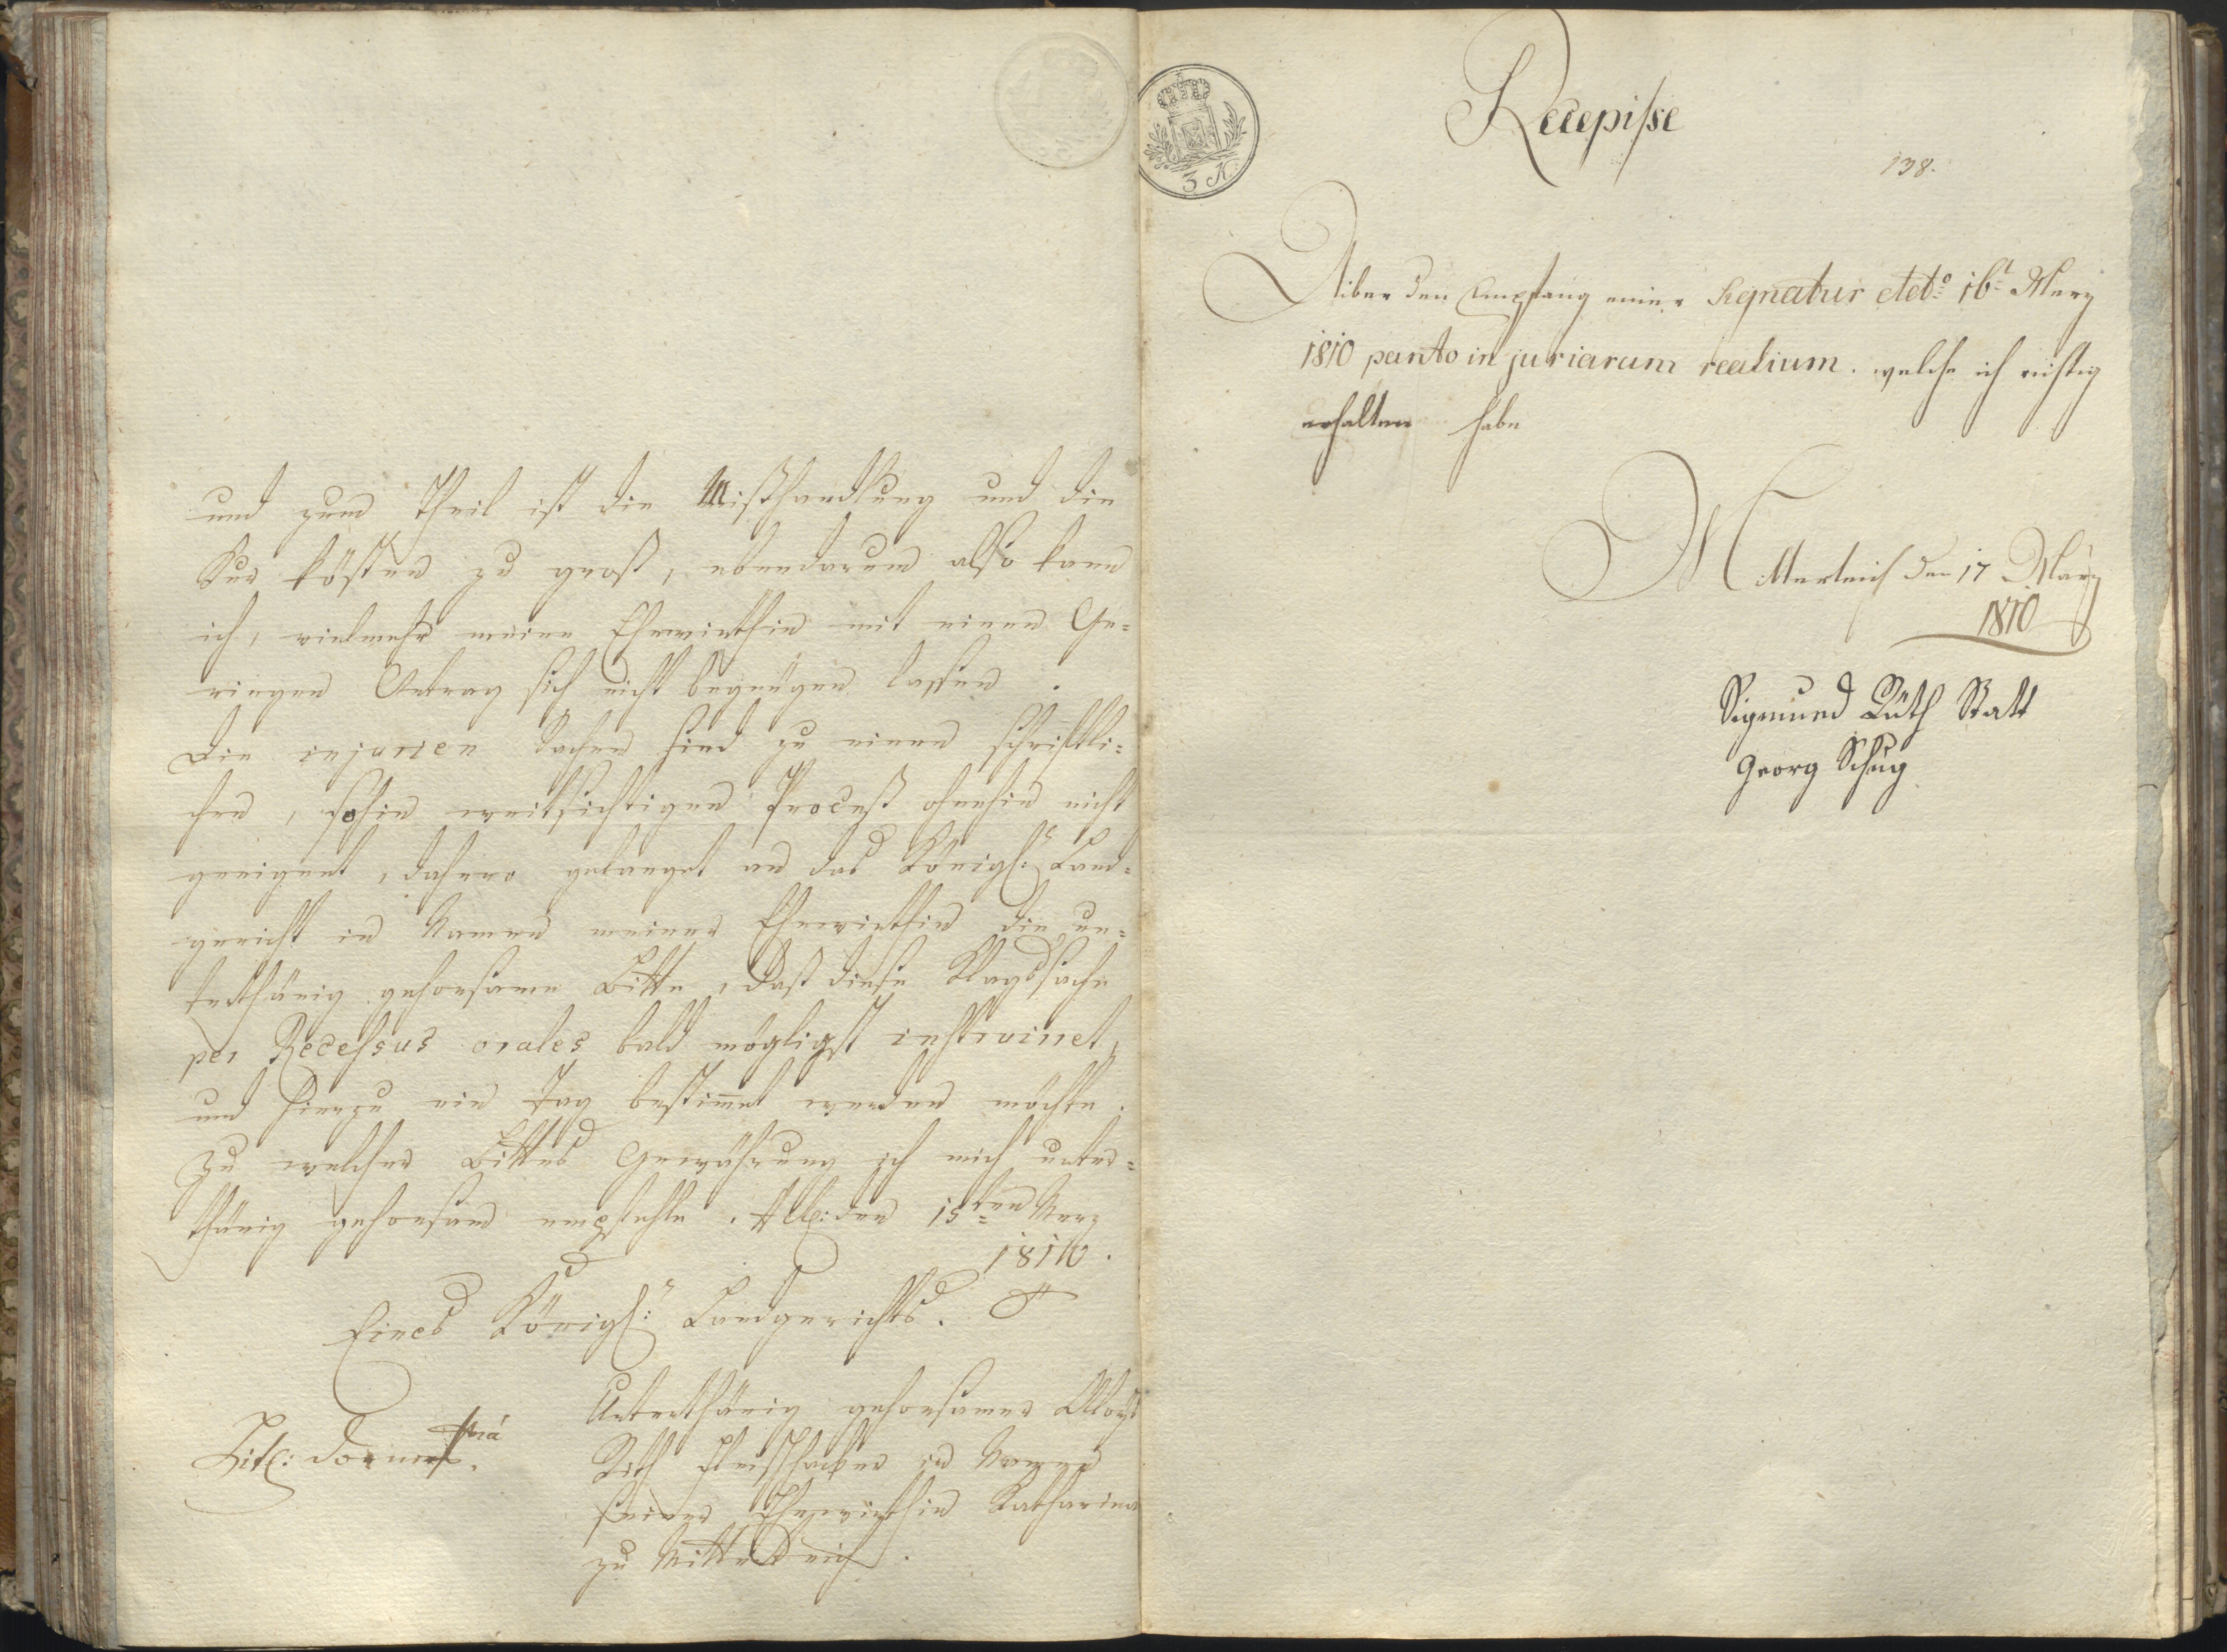 und zum Theil ist die Mißhandlung und die
Kur kösten zu groß, ebendarum also kann
ich, vielmehr meine Ehewirthin mit einen Ge=
ringen Antrag sich nicht begnügen lassen.
Die injurien Sachen sind zu einen schriftli=
chen, sohin weitsichtigen Proceß ohnehin nicht
geeignet, dahero gelanget an das Königl: Land=
gericht in Namen meiner Ehewirthin die un=
terthänig gehorsame Bitte, daß diese Klagssache
per Recessus orales bald mögligst instruiret,
und hierzu ein Tag bestimmt werden möchte.
Zu welcher Bittes Gewährung ich mich unter=
thänig gehorsam empfehle. den 15ten Merz
1810.
Eines Königl: Landgerichts.
Unterthänig gehorsamer Aloys
Rith Fleischhacker in Namen
seiner Ehewirthin Katharina
zu Mitterteich.
3 K
Recepisse
138.
Uiber den Empfang einer Signatur dto 16t Merz
1810 puncto injuriarum realium. welche ich richtig
erhalten habe
Mitterteich den 17 März
1810
Sigmund Rüth Statt
Georg Schug